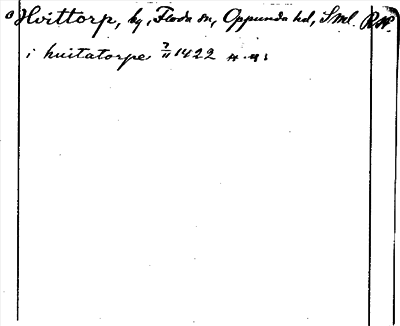 Hvittorp, by, Floda sn, Oppunda hd, Sml.
i huitatorpe 7/11 1422